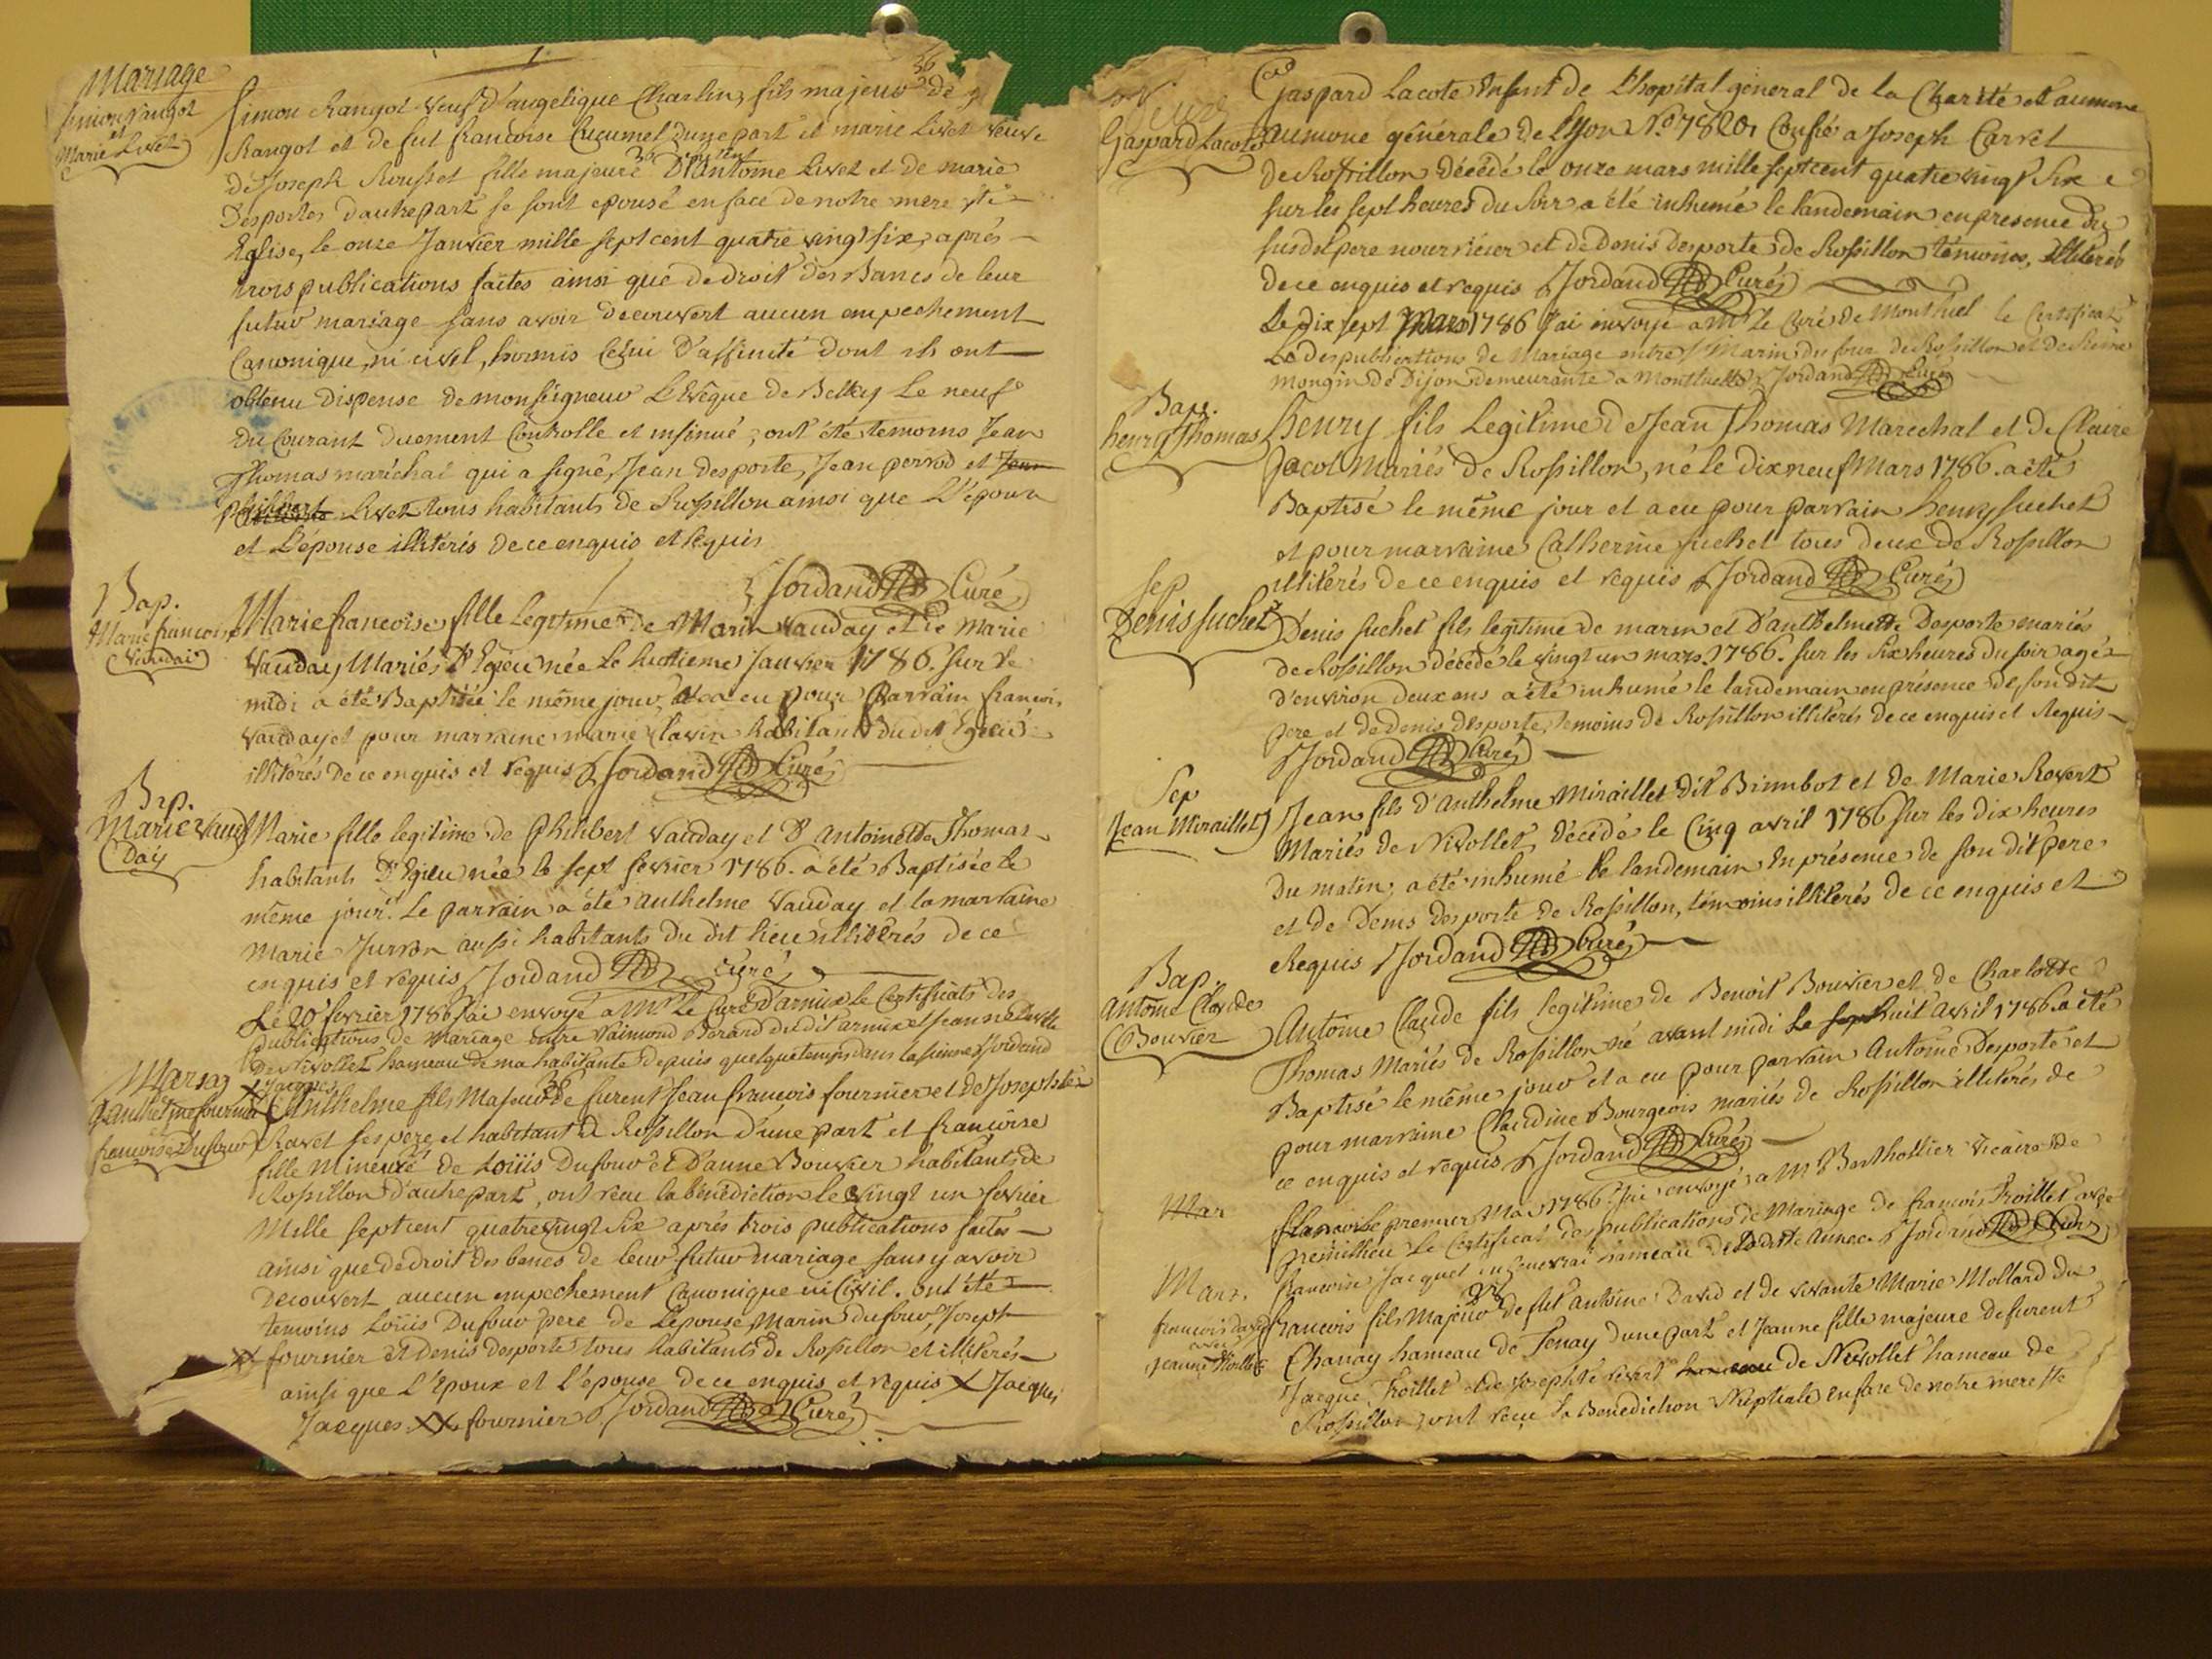 Mariage
Simon Rangot
et
Marie Livet
Simon Rangot veuf d'angelique Charlin, fils majeur 36 de
Rangot et de fut francoise Cucumel d'une part et marie Livet veuve
de Joseph Rousset fille majeure 30 D'antoine Livet et de marie
Desportes d'autre part se sont epousé en face de notre mere ste
Eglise, le onze Janvier mille sept cent quatre vingt six, après
trois publications faites ainsi que de droit des Bancs de leur
futur mariage sans avoir decouvert aucun empechement
Canonique, ni civil, hormis Celui D'affinité dont ils ont
obtenu dispense de monseigneur L'Evêque de Belley Le neuf
du Courant duement Controllé et insinué; ont été temoins Jean
Thomas maréchal qui a signé, Jean desporte, Jean perrod et Jean
philibert Livet tous habitants de Rossillon ainsi que L'epoux
et L'épouse illitérés de ce enquis et Requis
Jordand Curé
Bap.
Marie francoise
Vaudai
Marie francoise fille Legitime de Marin Vauday et de Marie
Vauday Mariés D'Egieu née Le huitieme Janvier 1786. sur le
midi a été Baptisée le même jour, et a eu pour Parrain francois
Vauday et pour marraine marie Clavin habitants du dit Egieu
illitérés de ce enquis et requis Jordand Curé
Bap.
Marie Vau
Day
Marie fille legitime de Philibert Vauday et D'antoinette Thomas
habitants D'Egieu née le sept fevrier 1786. a été Baptisée le
même jour. Le parrain a été Anthelme Vauday et la marraine
Marie Jurron aussi habitants du dit lieu illitérés de ce
enquis et requis Jordand curé
Le 20 fevrier 1786 j'ai envoyé a Mr le Curé d'arnix le Certificats des
publications de Mariage entre Raimond Borard du dit arnix et Jeanne
de Nivollet hameau de ma habitante depuis quelque temps dans la sienne Jordand
Mariag
X Jacques
anthelme fournier
francoise Dufour
Anthelme fils Majeur 38 de furent Jean francois fournier et de Josephte
Ravet ses pere et habitant de Rossillon d'une part et francoise
fille Mineure de Loüis Dufour et D'anne Bouvier habitants de
Rossillon d'autre part, ont recu la bénédiction le vingt un fevrier
Mille sept cent quatre vingt six après trois publications faites
ainsi que de droit des bancs de leur futur mariage sans y avoir
Decouvert aucun empechement Canonique ni Civil. ont été
temoins Loüis Dufour pere de L'epouse, Marin dufour, Joseph
XX fournier et Denis desporte tous habitants de Rossillon et illitérés
ainsi que L'Epoux et L'épouse de ce enquis et requis X Jacques
Jacques XX fournier Jordand Curé
Gaspard Lacote
Gaspard Lacote Enfant de L'hopital général de la Charité et aumone
aumone générale de Lyon No 7820, Confié a Joseph Carrel
de Rossillon décédé le onze mars mille sept cent quatre vingt Six
sur les sept heures du Soir a été inhumé le landemain en presence du
susdit pere nourricier et de Denis desporte de Rossillon témoins, illitérés
de ce enquis et requis Jordand Curé
Le dix sept Mars 1786 j'ai envoyé a Mr le Curé de Montluel le Certificat
des publications de Mariage entre Sr Marin du four de Rossillon et de Reine
mongin de Dijon demeurante a Montluel Jordand Curé
Bap.
henry Thomas
henry fils Legitime de Jean Thomas Marechal et de Claire
Jacol Mariés de Rossillon, né le dix neuf Mars 1786. a été
Baptisé le même jour et a eu pour parrain henry Suchet
et pour marraine Catherine Suchet tous deux de Rossillon
illitérés de ce enquis et requis Jordand Curé
Sep
Denis Suchet
Denis Suchet fils legitime de marin et D'anthelmette Desporte mariés
de Rossillon décédé le vingt un mars 1786. sur les six heures du soir agé
d'environ deux ans a été inhumé le landemain en présence de son dit
pere et de Denis desporte, temoins de Rossillon illitérés de ce enquis et Requis
Jordand Curé
Sep
Jean Miraillet
Jean fils d'Anthelme Miraillet dit Bimbot et de Marie Revert
Mariés de Nivollet, décédé le Cinq avril 1786 sur les dix heures
Du matin, a été inhumé le landemain En présence de son dit pere
et de Denis desporte de Rossillon, témoins illitérés de ce enquis et
Requis Jordand Curé
Bap.
Antoine Claude
Bouvier
Antoine Claude fils legitime de Benoit Bouvier et de Charlotte
Thomas Mariés de Rossillon né avant midi Le sept huit avril 1786. a été
Baptisé le même jour et a eu pour parrain Antoine Desporte et
pour marraine Claudine Bourgeois mariés de Rossillon illitérés de
ce enquis et requis Jordand Curé
Mar
Le premier Mai 1786 j'ai envoyé a Mr Berthollier Vicaire de
premillieu le Certificat des publications de Mariage de francois Troillet avec
francoise Jacquet hameau de la dite annexe Jordand Curé
Mar.
francois david
avec
jeanne Troillet
francois fils Majeur 28 de fut Antoine David et de vivante Marie Mollard du
Chanay hameau de Tenay d'une part et Jeanne fille majeure de furent
Jacque Troillet et de Josephte revert hameau de Nivollet hameau de
Rossillon, ont reçu la Benediction Nuptiale en face de notre mere ste